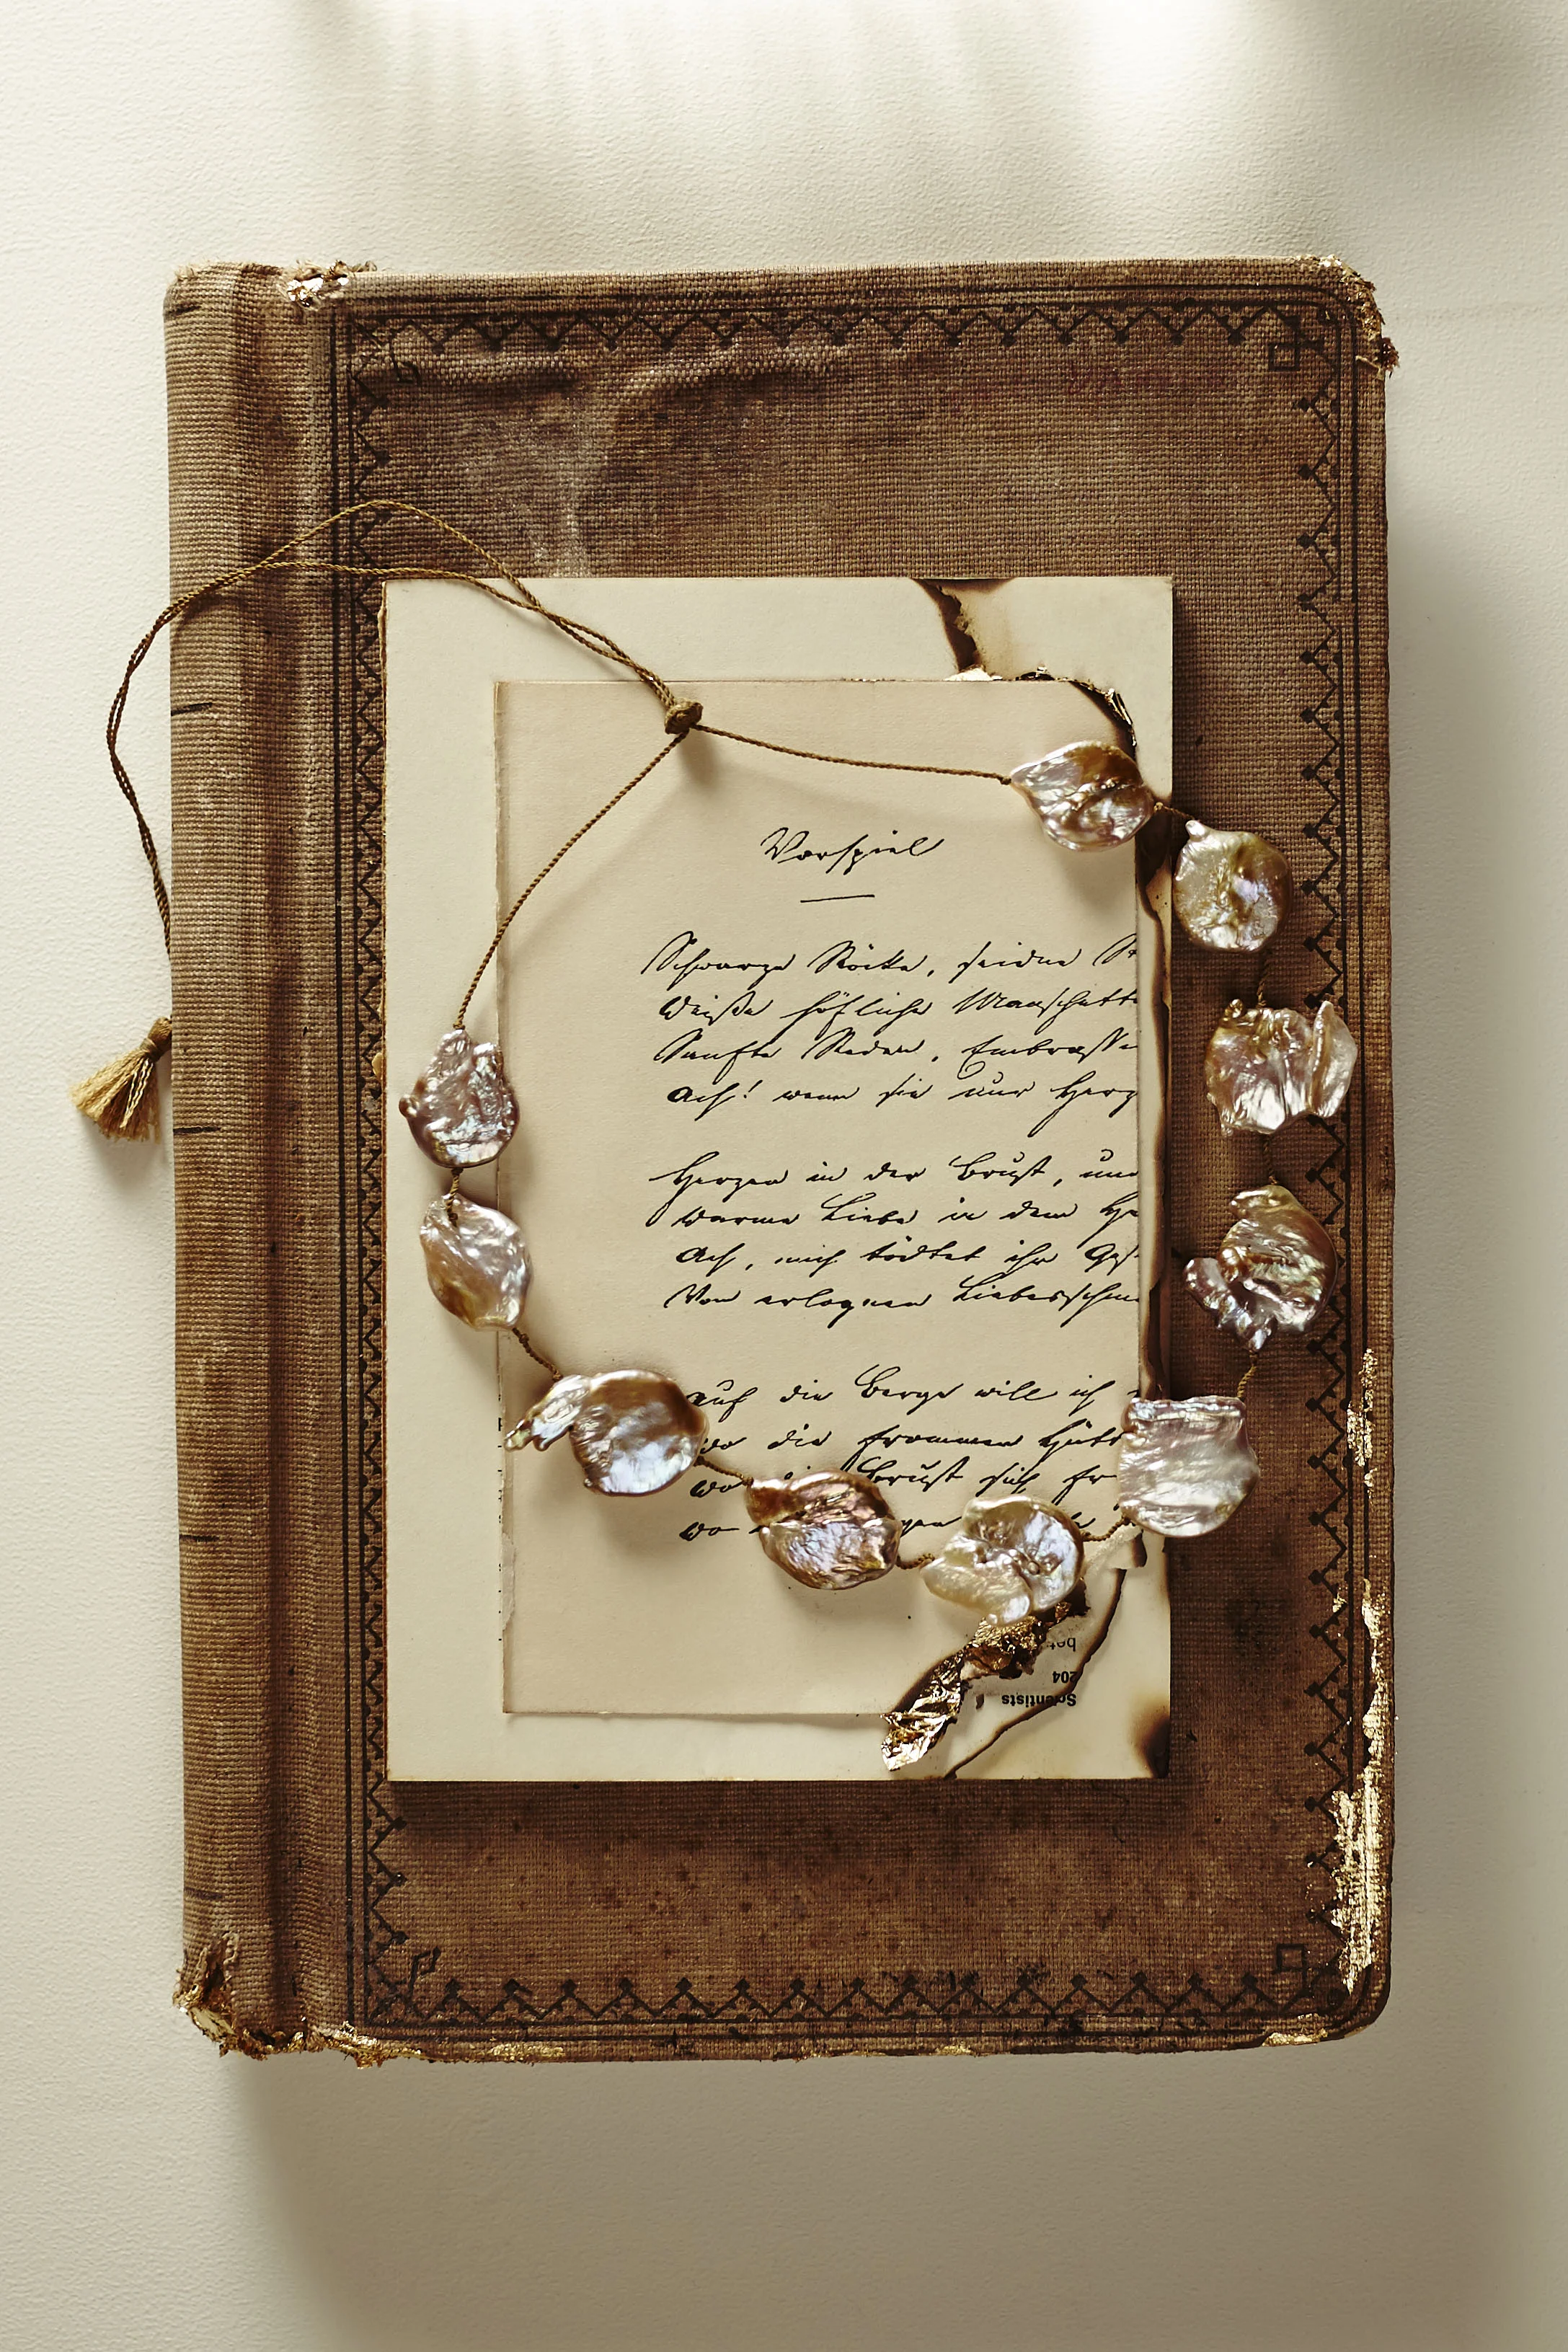 Vorspiel
Schwarze Röcke, seidne St
Weiße höfliche Manschette
Sanfte Reden, Embrassie
Ach! wenn sie nur Herz
Herzen in der Brust, und
Warme Liebe in dem He
Ach, mich tödtet ihr Ges
Von erlognen Liebesschme
Auf die Berge will ich
Wo die frommen Hütt
Wo die Brust sich fr
Wo
Scientists
204